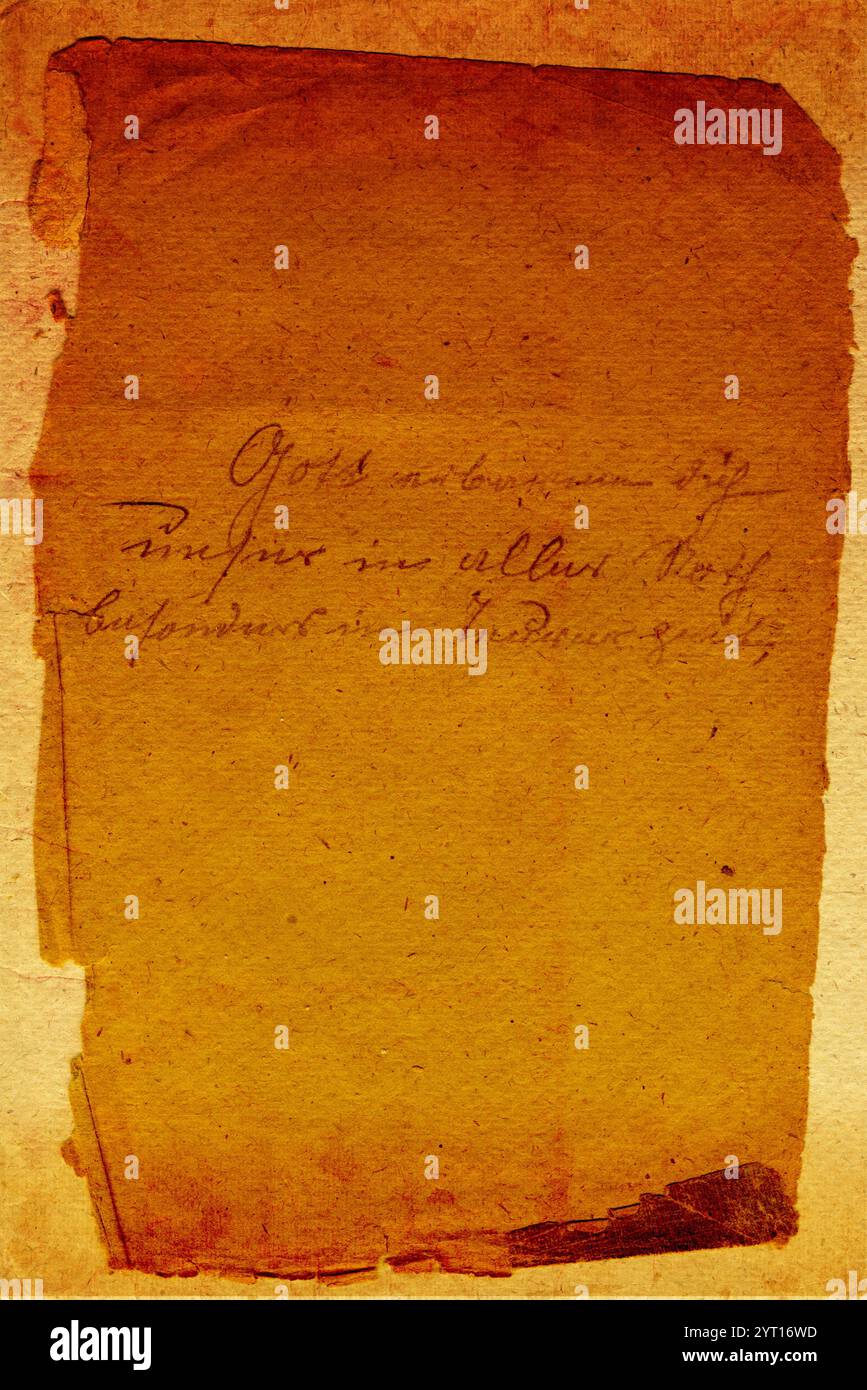 alamy
Gott erbarme dich
unser in aller Noth
besonders in zeit,
alamy
alamy
alamy
Image ID: 2YT16WD
www.alamy.com